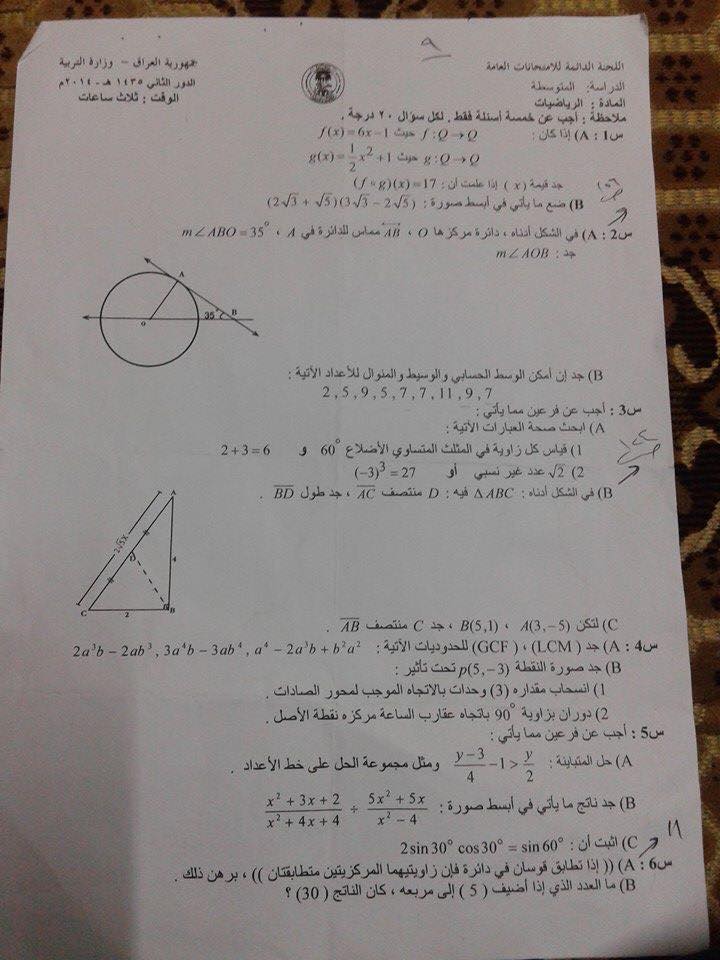 ٩
جمهورية العراق - وزارة التربية
الدور الثاني ١٤٣٥ هـ - ٢٠١٤م
الوقت : ثلاث ساعات
اللجنة الدائمة للامتحانات العامة
الدراسة: المتوسطة
المادة : الرياضيات
ملاحظة : أجب عن خمسة أسئلة فقط . لكل سؤال ٢٠ درجة .
س1 : A) إذا كان : f : Q → Q حيث f(x) = 6x − 1
g : Q → Q حيث g(x) = 1/2 x² + 1
جد قيمة ( x ) إذا علمت أن : (f ∘ g)(x) = 17
B) ضع ما يأتي في أبسط صورة : (2√3 + √5)(3√3 − 2√5)
س2 : A) في الشكل أدناه ، دائرة مركزها O ، AB مماس للدائرة في A ، m∠ABO = 35°
جد : m∠AOB
A
35°
B
O
B) جد إن أمكن الوسط الحسابي والوسيط والمنوال للأعداد الآتية :
2 , 5 , 9 , 5 , 7 , 7 , 11 , 9 , 7
س3 : أجب عن فرعين مما يأتي :
A) ابحث صحة العبارات الآتية :
1) قياس كل زاوية في المثلث المتساوي الأضلاع 60° و 2 + 3 = 6
2) √2 عدد غير نسبي أو (−3)³ = 27
B) في الشكل أدناه : ΔABC فيه : D منتصف AC ، جد طول BD .
A
2√5X
D
4
C
2
B
C) لتكن A(3,−5) ، B(5,1) ، جد C منتصف AB .
س4 : A) جد ( LCM ) ، (GCF) للحدوديات الآتية : 2a³b − 2ab³ , 3a⁴b − 3ab⁴ , a⁴ − 2a³b + b²a²
B) جد صورة النقطة p(5,−3) تحت تأثير :
1) انسحاب مقداره (3) وحدات بالاتجاه الموجب لمحور الصادات .
2) دوران بزاوية 90° باتجاه عقارب الساعة مركزه نقطة الأصل .
س5 : أجب عن فرعين مما يأتي :
A) حل المتباينة : (y−3)/4 − 1 > y/2 ومثل مجموعة الحل على خط الأعداد .
B) جد ناتج ما يأتي في أبسط صورة : (x² + 3x + 2)/(x² + 4x + 4) ÷ (5x² + 5x)/(x² − 4)
C) اثبت أن : 2 sin 30° cos 30° = sin 60°
س6 : A) (( إذا تطابق قوسان في دائرة فإن زاويتيهما المركزيتين متطابقتان )) ، برهن ذلك .
B) ما العدد الذي إذا أضيف ( 5 ) إلى مربعه ، كان الناتج ( 30 ) ؟